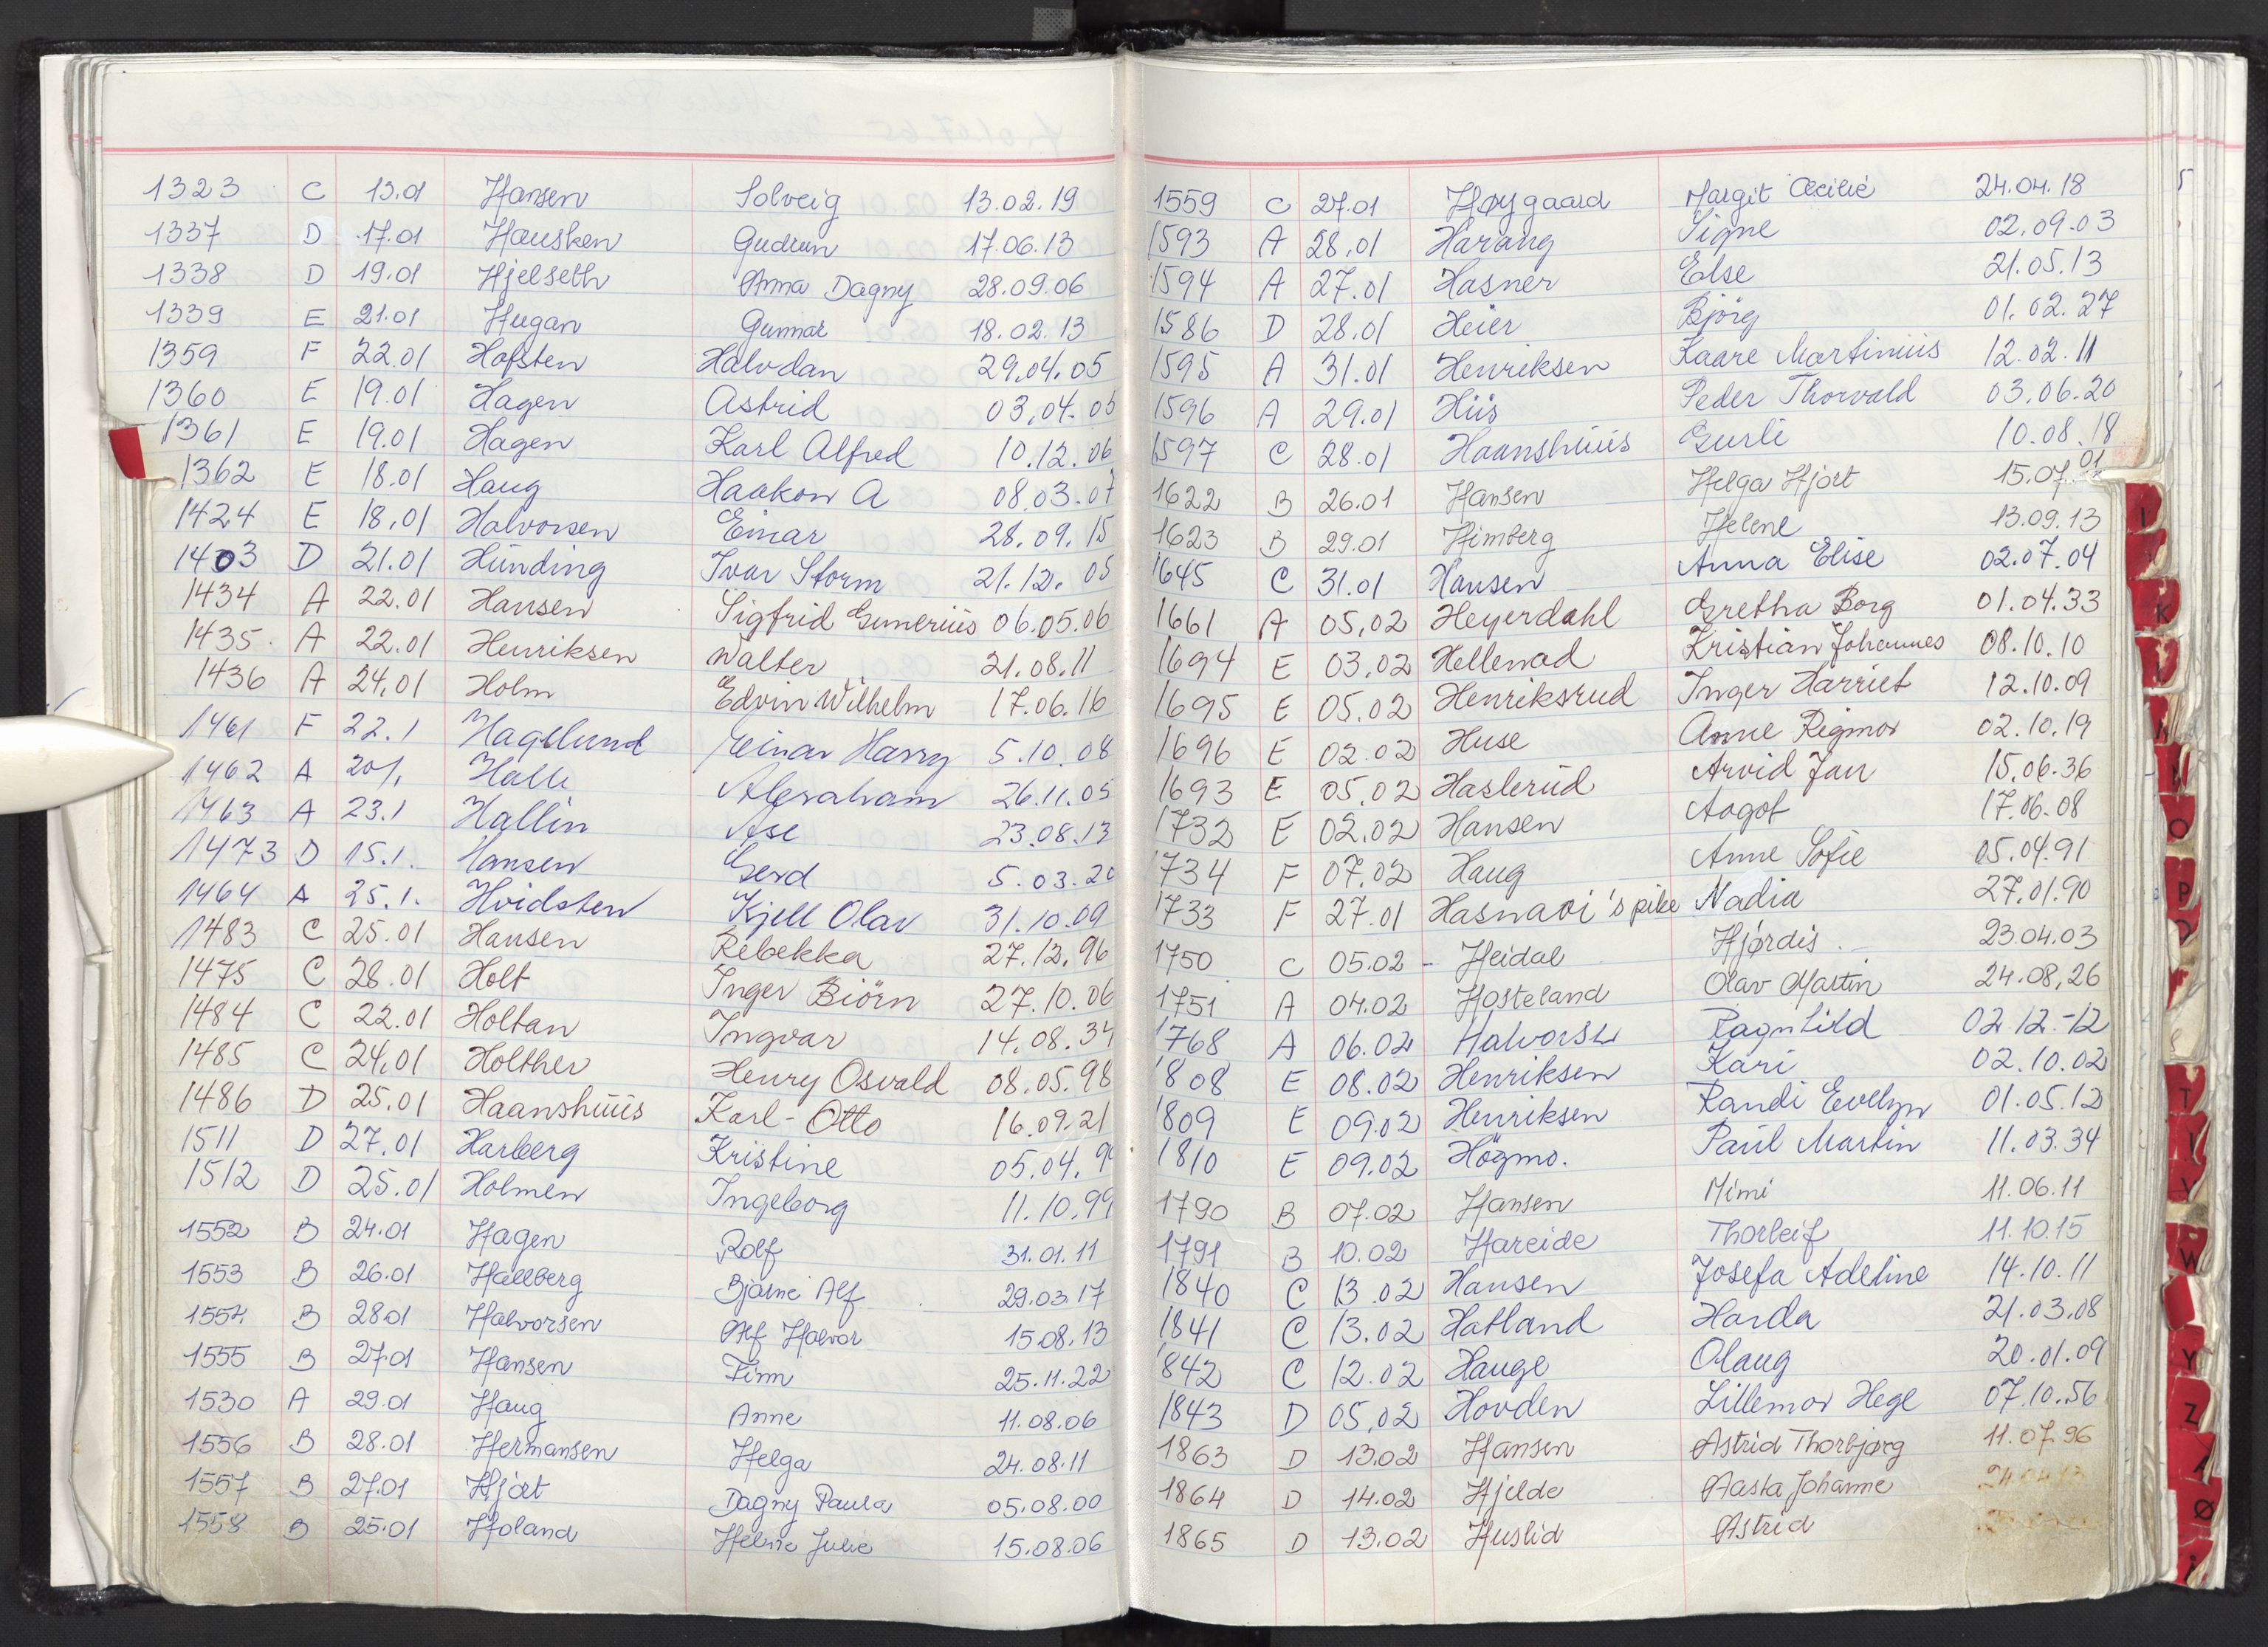 1323 C 13.01 Hansen Solveig 13.02.19
1337 D 17.01 Hausken Gudrun 17.06.13
1338 D 19.01 Hjelseth Anna Dagny 28.09.06
1339 E 21.01 Haugan Gunnar 18.02.13
1359 F 22.01 Hofsten Halvdan 29.04.05
1360 E 19.01 Hagen Astrid 03.04.05
1361 E 19.01 Hagen Karl Alfred 10.12.06
1362 E 18.01 Haug Haakon A 08.03.07
1424 E 18.01 Halvorsen Einar 28.09.15
1403 D 21.01 Hunding Ivar Storm 21.12.05
1434 A 22.01 Hansen Sigfrid Gunerius 06.05.06
1435 A 22.01 Henriksen Walter 21.08.11
1436 A 24.01 Holm Edvin Wilhelm 17.06.16
1461 F 22.1 Hagelund Einar Harry 5.10.08
1462 A 20/1. Halle Abraham 26.11.05
1463 A 23.1 Hallin Åse 23.08.13
1473 D 15.1. Hansen Gerd 5.03.20
1464 A 25.1. Hvidsten Kjell Olav 31.10.09
1483 C 25.01 Hansen Rebekka 27.12.96
1475 C 28.01 Holt Inger Biörn 27.10.06
1484 C 22.01 Holtan Ingvar 14.08.34
1485 C 24.01 Holther Henry Osvald 08.05.98
1486 D 25.01 Haanshuus Karl-Otto 16.09.21
1511 D 27.01 Harberg Kristine 05.04.
1512 D 25.01 Holmen Ingeborg 11.10.99
1552 B 24.01 Hagen Rolf 31.01.11
1553 B 26.01 Hallberg Bjarne Alf 29.03.17
1554 B 28.01 Halvorsen Alf Halvor 15.08.13
1555 B 27.01 Hansen Finn 25.11.22
1530 A 29.01 Haug Anne 11.08.06
1556 B 28.01 Hermansen Helga 24.08.11
1557 B 27.01 Hjort Dagny Paula 05.08.00
1558 B 25.01 Holand Helene Julie 15.08.06
1559 C 27.01 Høygaard Margit Cecilie 24.04.18
1593 A 28.01 Harang Signe 02.09.03
1594 A 27.01 Hasner Else 21.05.13
1586 D 28.01 Heier Björg 01.02.27
1595 A 31.01 Henriksen Kaare Martinius 12.02.11
1596 A 29.01 Hiis Peder Thorvald 03.06.20
1597 C 28.01 Haanshuus Gurli 10.08.18
1622 B 26.01 Hansen Helga Hjort 15.07.01
1623 B 29.01 Himberg Helene 13.09.13
1645 C 31.01 Hansen Anna Elise 02.07.04
1661 A 05.02 Heyerdahl Gretha Borg 01.04.33
1694 E 03.02 Hellerud Kristian Johannes 08.10.10
1695 E 05.02 Henriksrud Inger Harriet 12.10.09
1696 E 02.02 Huse Anne Rigmor 02.10.19
1693 E 05.02 Haslerud Arvid Jan 15.06.36
1732 E 02.02 Hansen Aagot 17.06.08
1734 F 07.02 Haug Anne Sofie 05.04.91
1733 F 27.01 Hasnaoi's pike Nadia 27.01.90
1750 C 05.02 - Heidal Hjørdis. 23.04.03
1751 A 04.02 Hosteland Olav Martin 24.08.26
1768 A 06.02 Halvorsen Ragnhild 02.12.-12
1808 E 08.02 Henriksen Kari 02.10.02
1809 E 09.02 Henriksen Randi Evelyn 01.05.12
1810 E 09.02 Högmo. Paul Martin 11.03.34
1790 B 07.02 Hansen Mimi 11.06.11
1791 B 10.02 Hareide Thorleif 11.10.15
1840 C 13.02 Hansen Josefa Adeline 14.10.11
1841 C 13.02 Hatland Harda 21.03.08
1842 C 12.02 Hauge Olaug 20.01.09
1843 D 05.02 Hovden Lillemor Hege 07.10.56
1863 D 13.02 Hansen Astrid Thorbjørg 11.07.96
1864 D 14.02 Hjelde Aasta Johanne
1865 D 13.02 Huslid Astrid
K
O
P
T
V
W
Y
Z
Ø